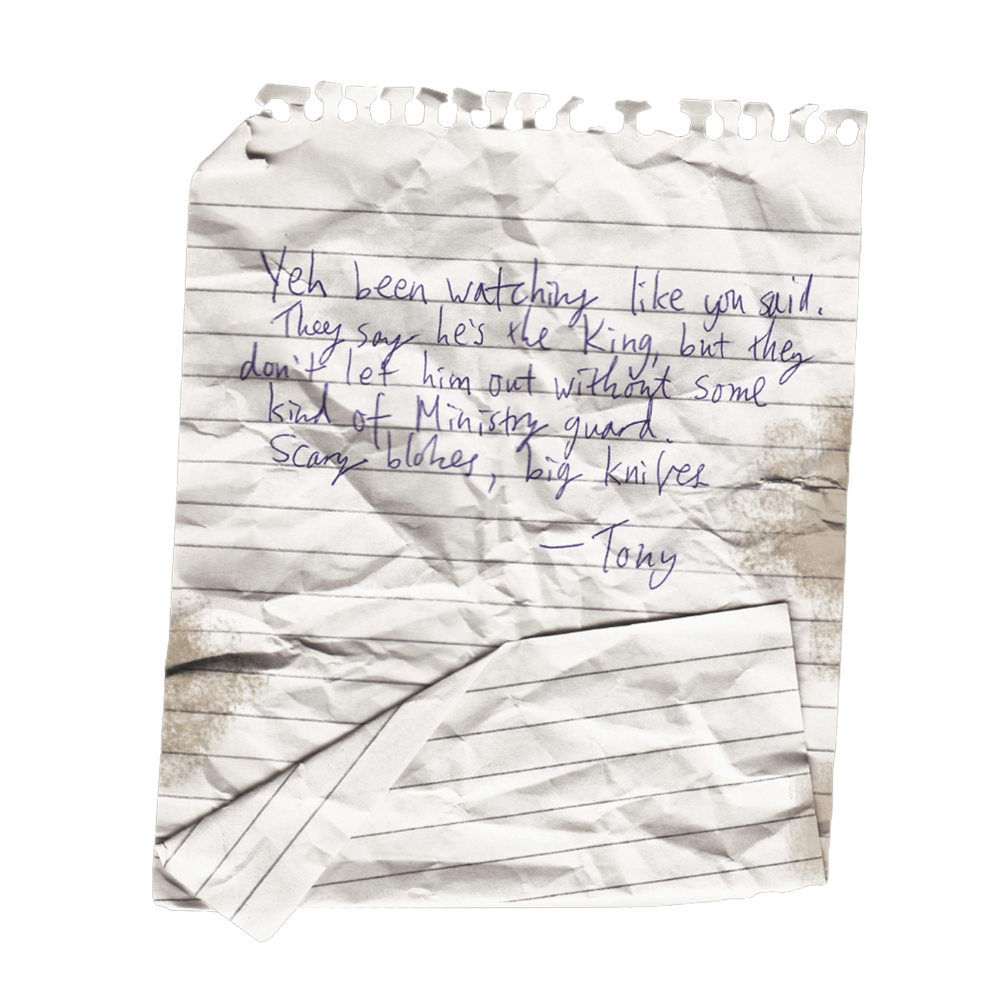 Yeh been watching like you said.
They say he's the King, but they
don't let him out without some
kind of Ministry guard.
Scary blokes, big knives
— Tony